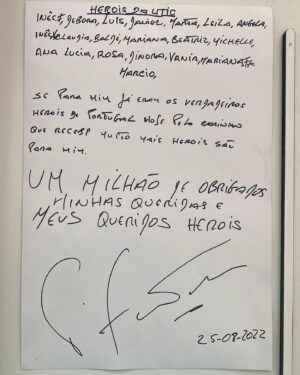 HEROIS DA UTIC
INÊS, DEBORA, LUIS, DANIEL, MARTA, LEILA, ANGELA,
CLAUDIA, BALDÉ, MARIANA, BEATRIZ, MICHELLE,
ANA LUCIA, ROSA, DINORA, VANIA, MARIANA,
MARCIO,
SE PARA MIM JÁ ERAM OS VERDADEIROS
HEROIS DE PORTUGAL HOJE PELO CARINHO
QUE RECEBI MUITO MAIS HEROIS SÃO
PARA MIM.
UM MILHÃO DE OBRIGADOS
MINHAS QUERIDAS E
MEUS QUERIDOS HEROIS
25-08-2022